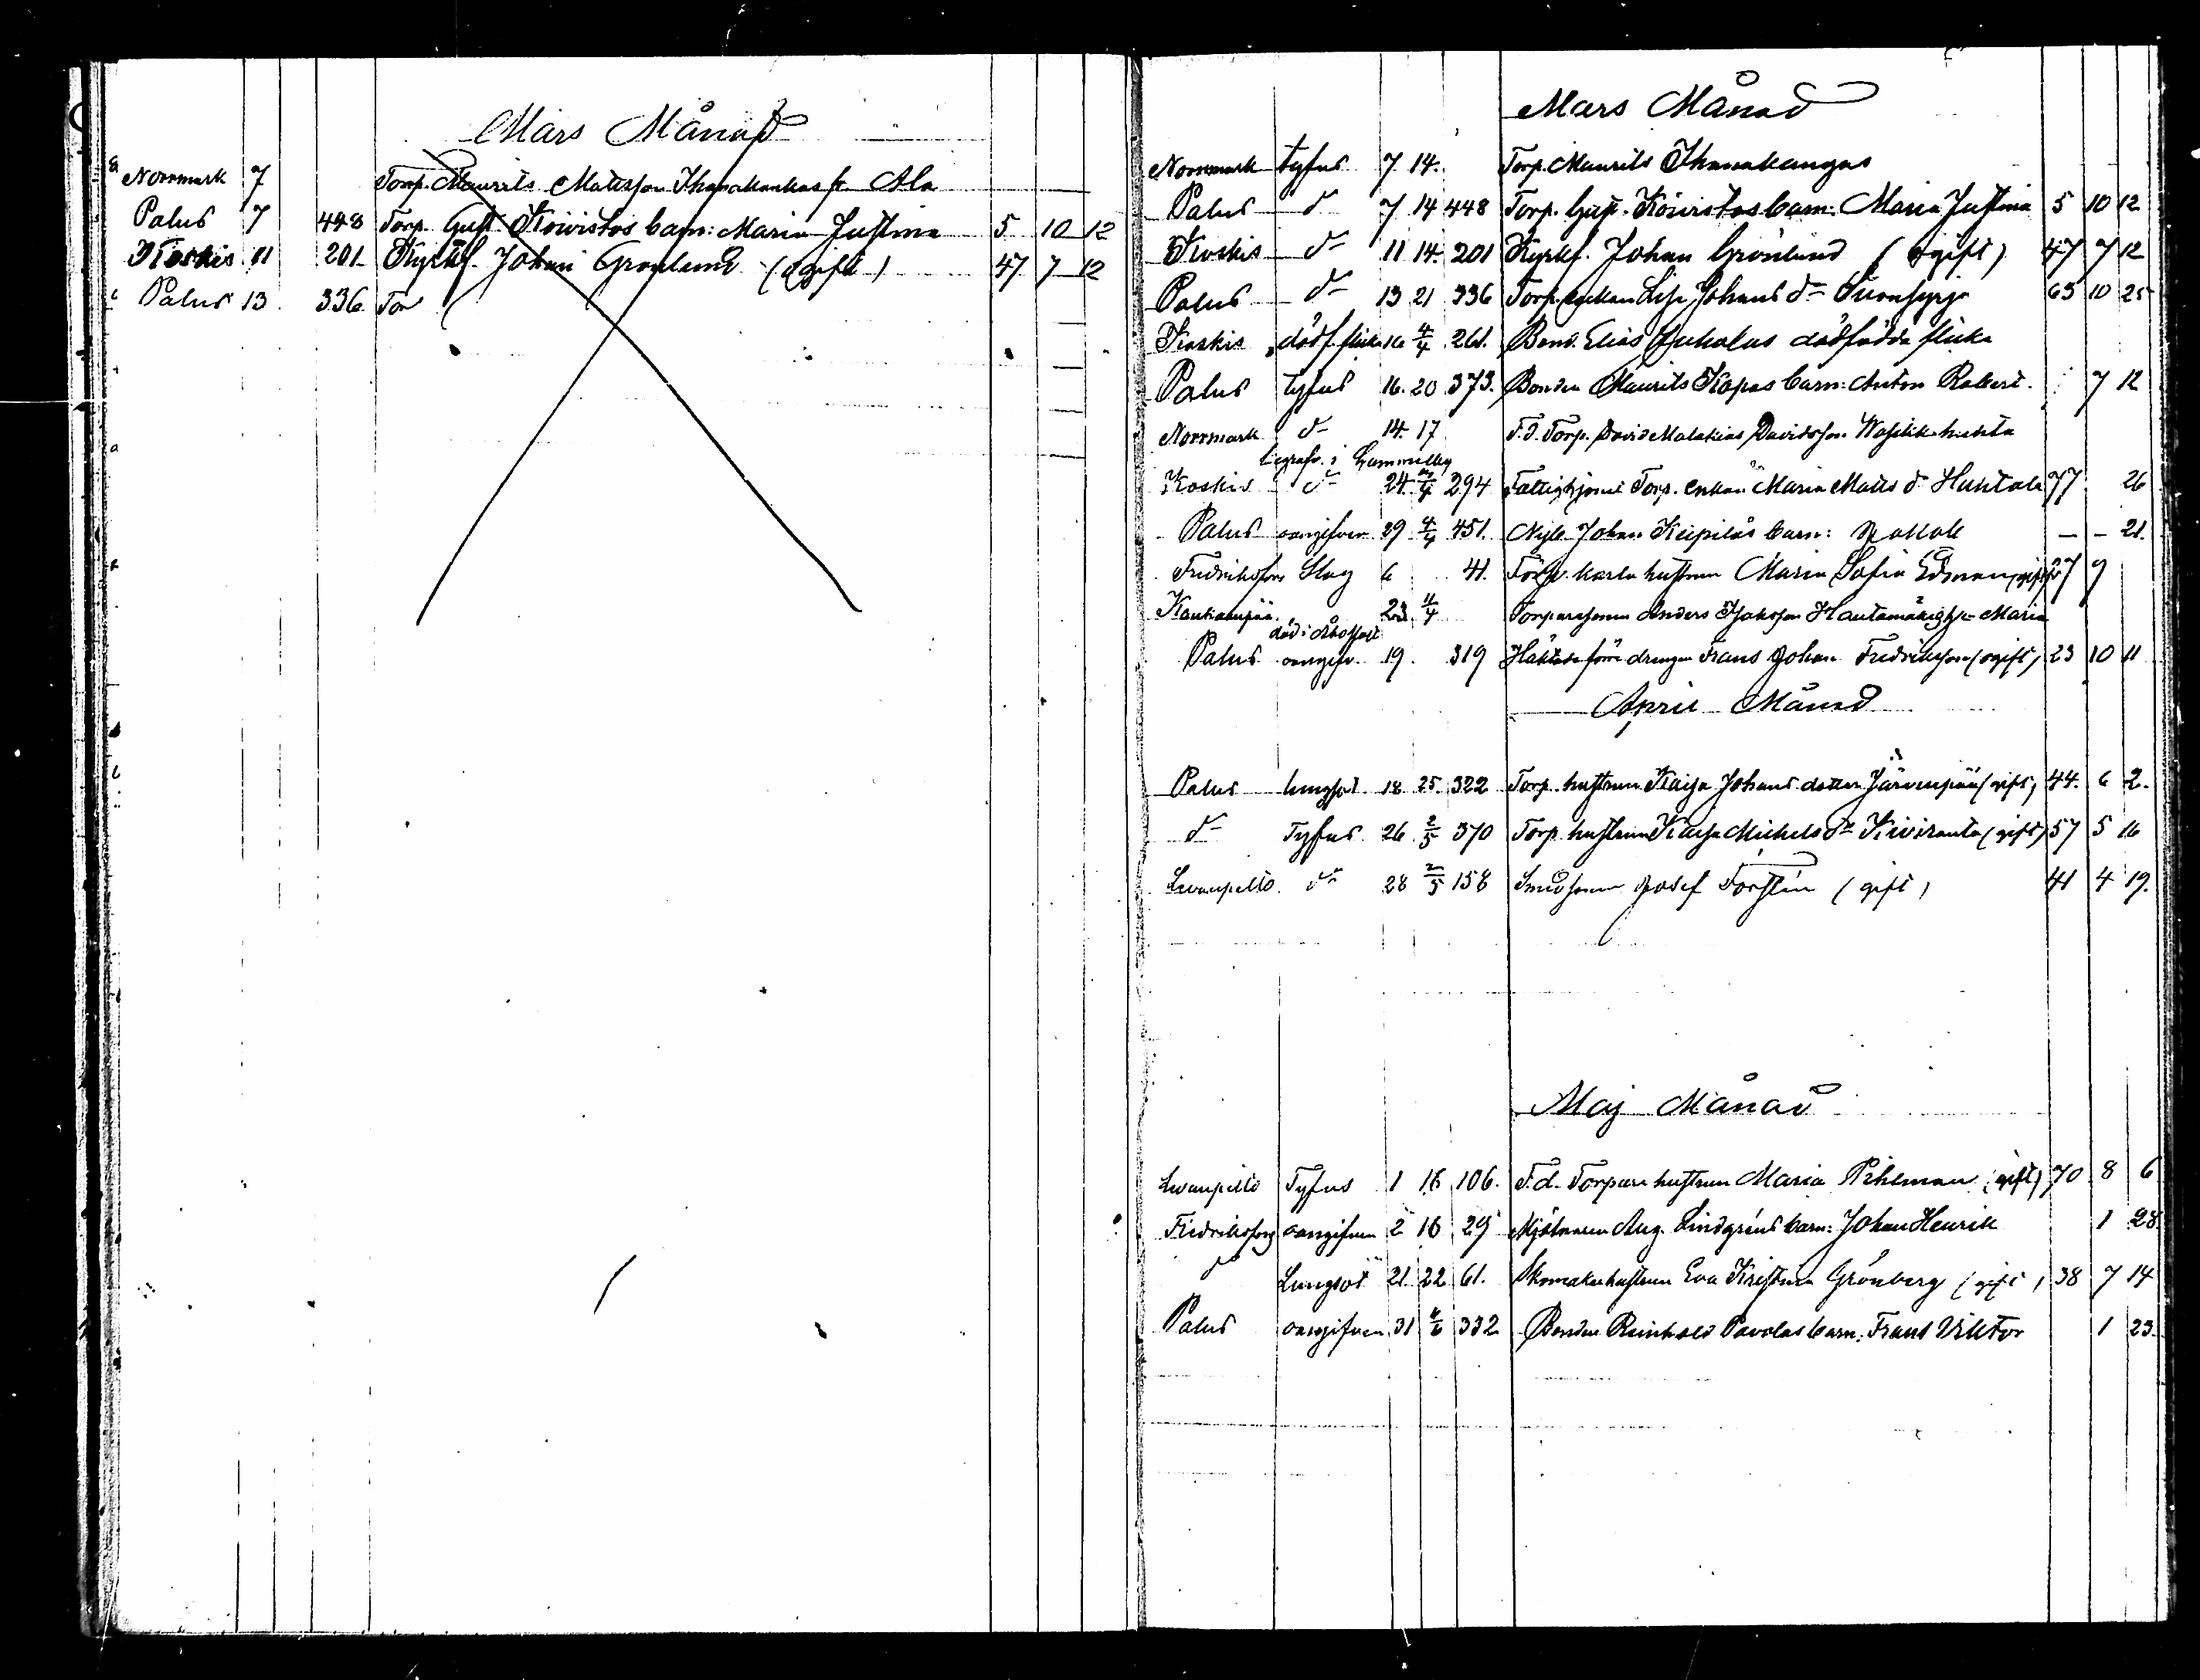 Mars Månad
Norrmark 7 Torp. Maurits Mattsson Ihanakankas fr Ala
Palus 7 448 Torp. Gust. Koivistos barn: Maria Justina 5 10 12
Koskis 11 201 Kyrkf. Johan Grönlund (ogift) 47 7 12
Palus 13 336 Tor
Mars Månad
Norrmark tyfus 7 14. Torp. Maurits Ihanakangas
Palus d:o 7 14 448 Torp. Gust. Koivistos barn: Maria Justina 5 10 12
Koskis d:o 11 14. 201 Kyrkf. Johan Grönlund (ogift) 47 7 12
Palus d:o 13 21 336 Torp. enkan Lisa Johans d:r 63 10 25
Koskis dödf. flicka 16 4/4 261. Bond. Elias Jukolas dödfödda flicka
Palus tyfus 16. 20 373. Bonden Maurits Kopas barn: Anton Robert. 7 12
Norrmark d:o 14. 17 F.d. Torp. David Malakias Davidsson
begrafv. i Lammelby
Koskis d:o 24. 294 Fattighjonet Torp. enkan Maria Matts d:r Huhtala 77 26
Palus oangifven 29 4/4 451. Nyb. Johan Keipiläs barn: — — 21.
Fredriksfors Slag 6 41. Torp. karla hustrun Maria Sofia Edman (gift) 27 9
23. 11/4 Torparesonen Anders Isaksson Hautamäki Maria
död i
Palus oangifv. 19. 319 Häktade förre drengen Frans Johan Fredriksson (ogift) 23 10 11
April Månad
Palus lungsot 18 25. 322 Torp. hustrun Kaisa Johans dotter Järvenpää (gift) 44. 6 2.
d:o Tyfus 26 2/5 370 Torp. hustrun Kaisa Michels d:r Kiviranta (gift) 57 5 16
Levanpelto d:o 28 2/5 158 Smedsonen Josef Forstén (gift) 41 4 19.
Maj Månad
Levanpelto Tyfus 1 16 106. F.d. Torpare hustrun Maria Pihlman (gift) 70 8 6
Fredriksfors oangifven 2 16 29 Mjölnaren Aug. Lindgréns barn: Johan Henrik 1 28.
d:o Lungsot 21. 22 61. Skomakarhustrun Eva Kristina Grönberg (gift) 38 7 14
Palus oangifven 31 4/6 332 Bonden Reinhold Pavolas barn: Frans Viktor 1 23.